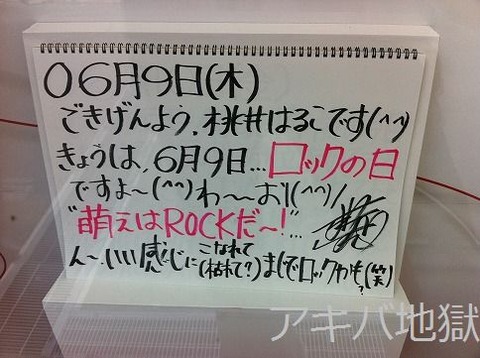 ○6月9日(木)
ごきげんよう、桃井はるこです(^^)
きょうは、6月9日…ロックの日
ですよ〜(^^)わ〜〜お!(^^)/
"萌えはROCKだ〜!"…
ん〜、いい感じにこなれて(枯れて?)ましてロックかも(笑)?
アキバ地獄